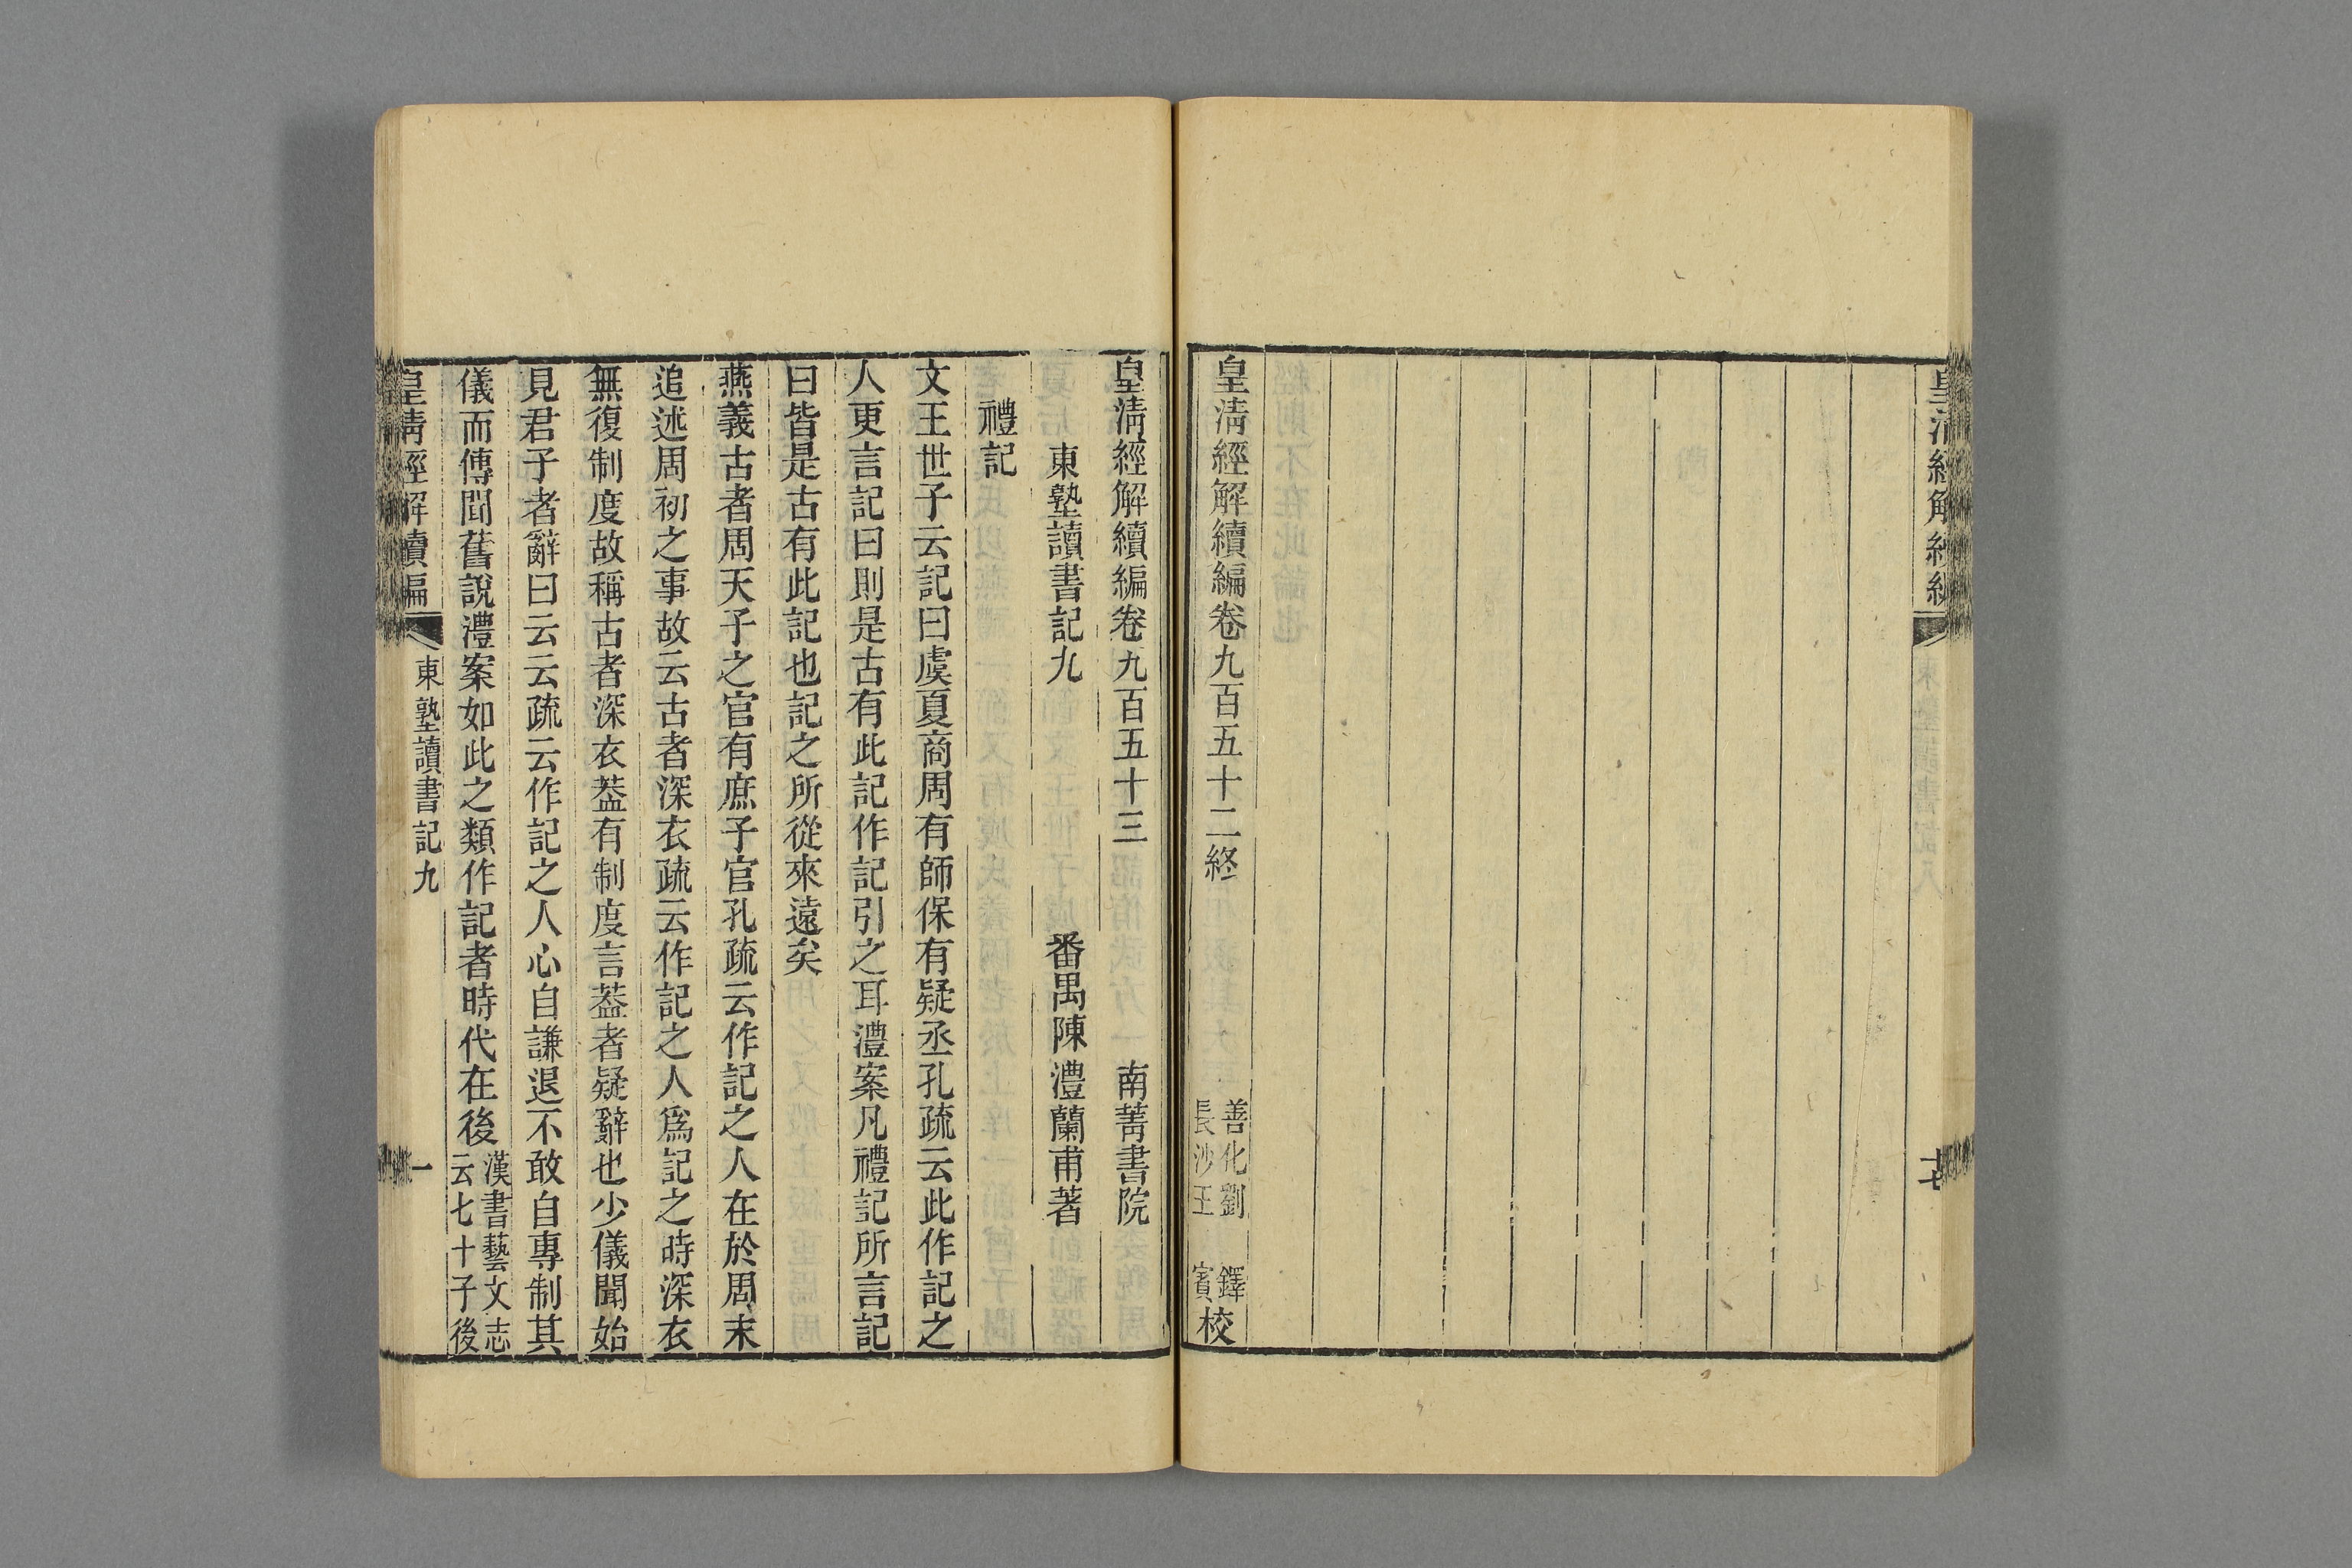 皇清經解續編
十七
皇清經解續編卷九百五十二終
善化劉鐸
長沙王賓校
皇清經解續編卷九百五十三 南菁書院
東塾讀書記九 番禺陳澧蘭甫著
禮記
文王世子云記曰虞夏商周有師保有疑丞孔疏云此作記之
人更言記曰則是古有此記作記引之耳澧案凡禮記所言記
曰皆是古有此記也記之所從來遠矣
燕義古者周天子之官有庶子官孔疏云作記之人在於周末
追述周初之事故云古者深衣疏云作記之人爲記之時深衣
無復制度故稱古者深衣葢有制度言葢者疑辭也少儀聞始
見君子者辭曰云云疏云作記之人心自謙退不敢自專制其
儀而傳聞舊說澧案如此之類作記者時代在後漢書藝文志
云七十子後
皇清經解續編 東塾讀書記九 一